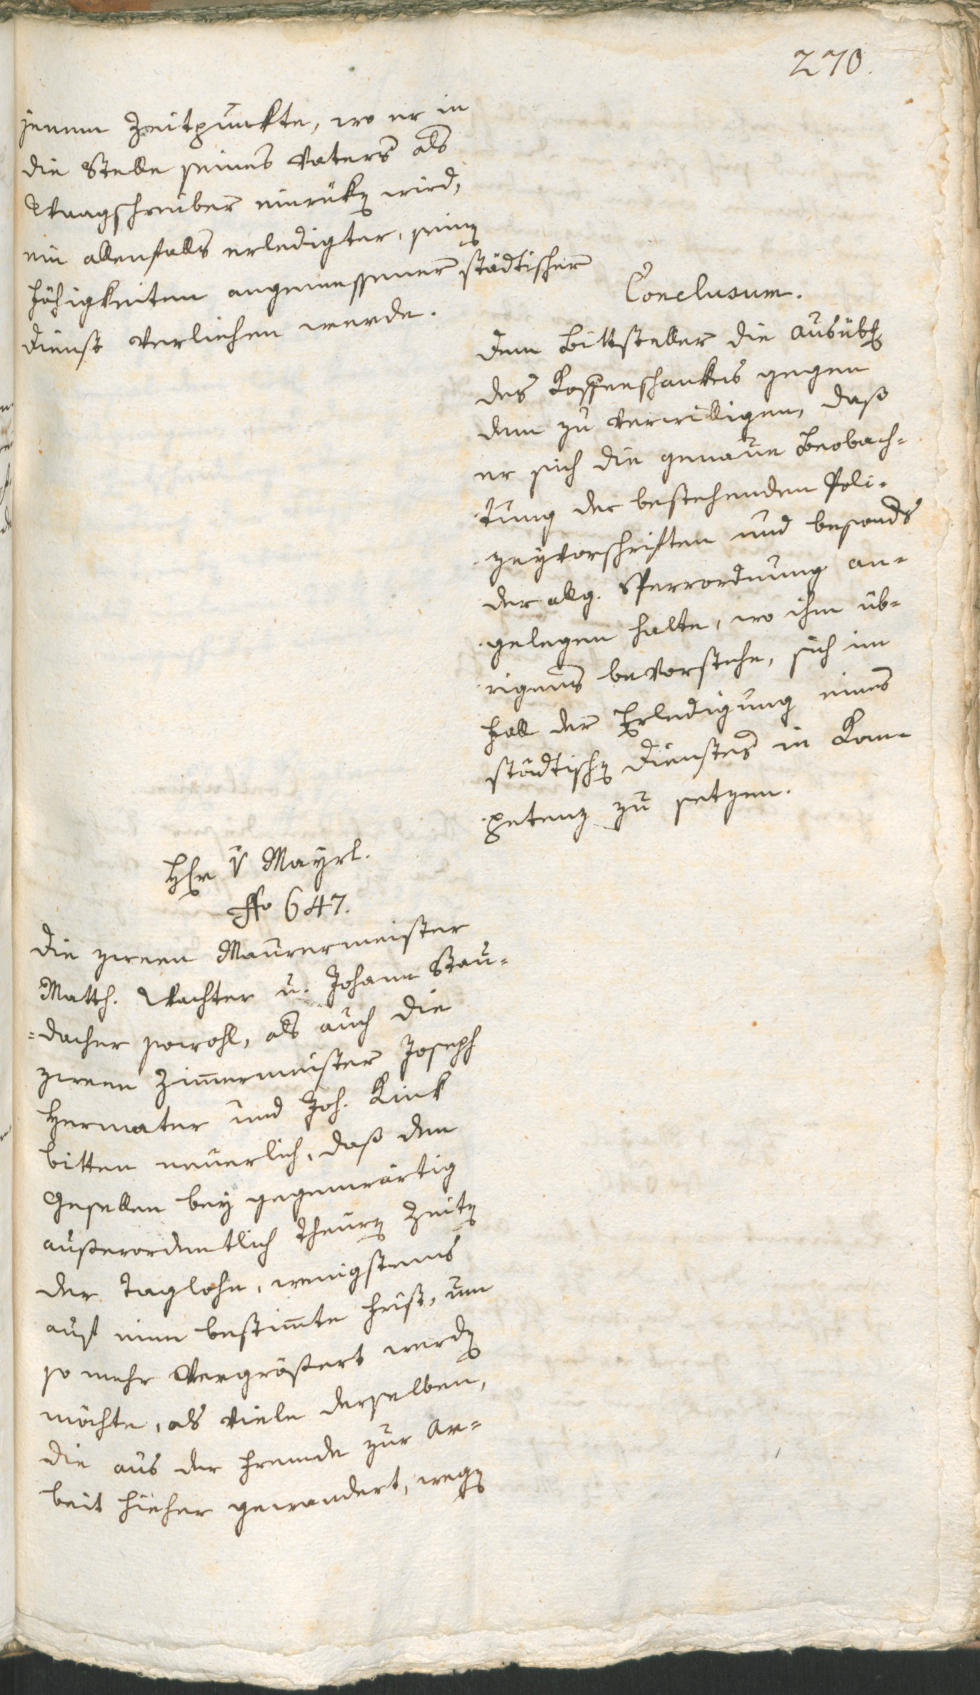 270.
jenem Zeitpunkte, wo er in
die Stelle seines Vaters als
Waagschreiber einrüken wird,
ein allenfalls erledigter, seinen
Fähigkeiten angemessener städtischer
Dienst verliehen werde.
Conclusum.
Dem Bittsteller die Ausübung
des Kaffeeschankes gegen
dem zu verwilligen, daß
er sich die genaue Beobach-
tung der bestehenden Poli-
zeyvorschriften und besonders
der allg. Sperrordnung an-
gelegen halte, wo ihm üb-
rigens bevorstehe, sich im
Fall der Erledigung eines
städtischen Dienstes in Kom-
petenz zu setzen.
Hr v Mayrl.
No 647.
Die zween Maurermeister
Matth. Wachter u. Johann Stau-
dacher sowohl, als auch die
zween Zimmermeister Joseph
Hermater und Joh. Kink
bitten neuerlich, daß dem
Gesellen bey gegenwärtig
außerordentlich theuren Zeiten
der Taglohn, wenigstens
auf eine bestimmte Frist, um
so mehr vergrößert werden
möchte, als viele derselben,
die aus der Fremde zur Ar-
beit hieher gewandert, wegen